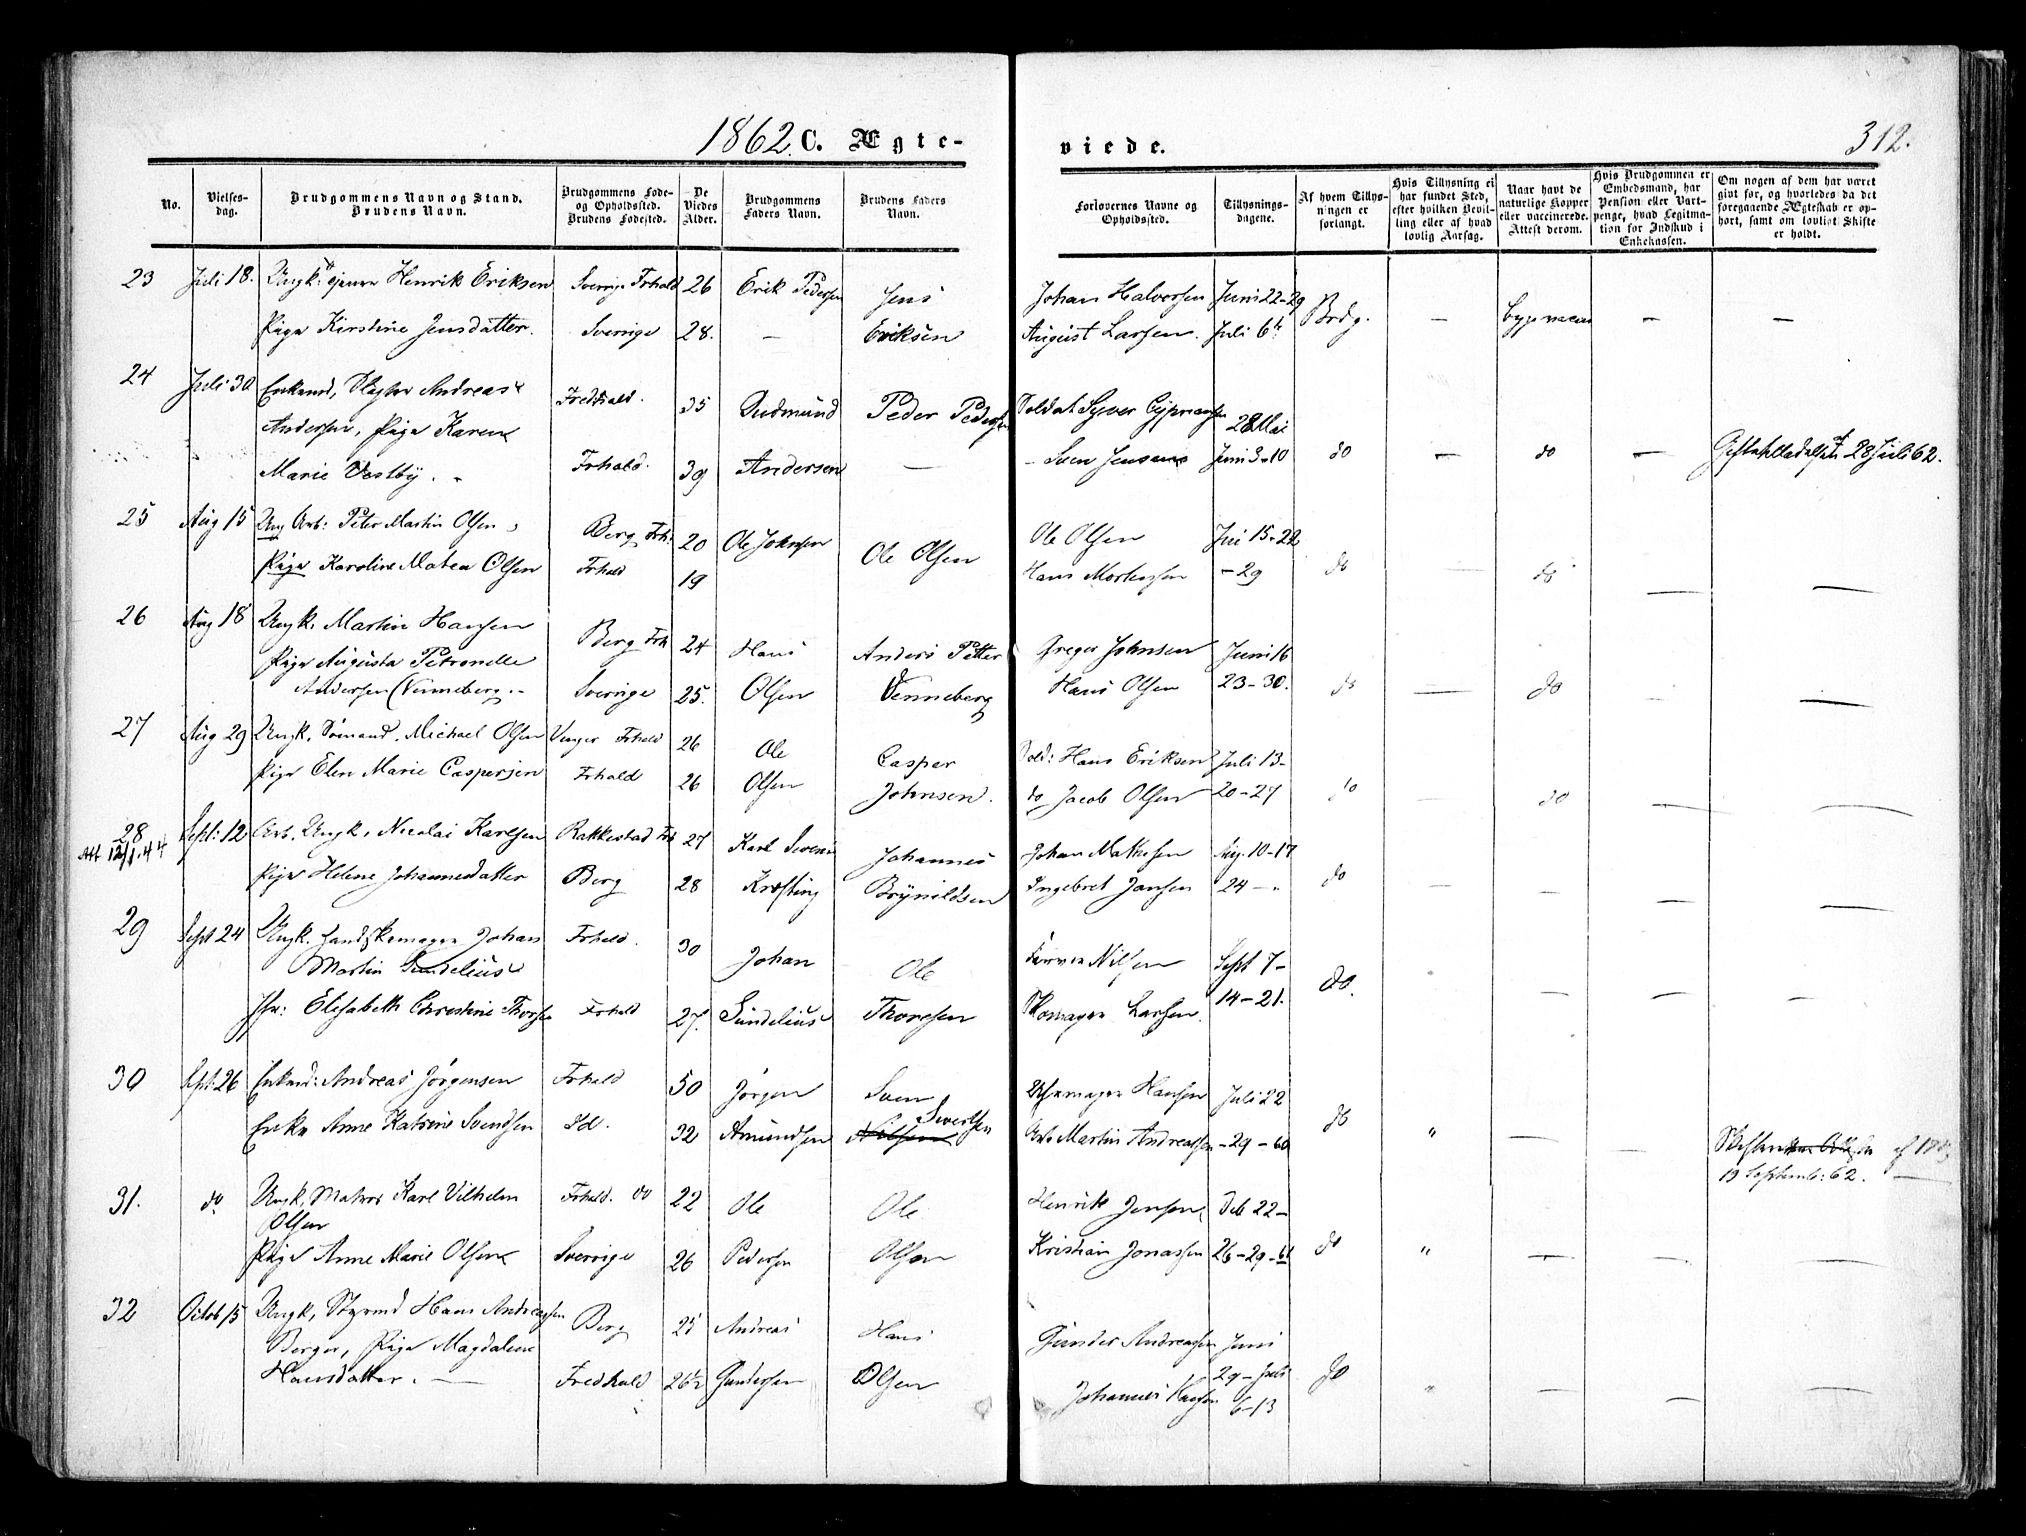 1862. C. Ægte-
viede.
312.
No.
Vielses-
dag.
Brudgommens Navn og Stand.
Brudens Navn.
Brudgommens Føde-
og Opholdssted.
Brudens Fødested.
De
Viedes
Alder.
Brudgommens
Faders Navn.
Brudens Faders
Navn.
Forlovernes Navne og
Opholdssted.
Tillysnings-
dagene.
Af hvem Tillys-
ningen er
forlangt.
Hvis Tillysning ei
har fundet Sted,
efter hvilken Bevil-
ling eller af hvad
lovlig Aarsag.
Naar havt de
naturlige Kopper
eller vaccinerede.
Attest derom.
Hvis Brudgommen er
Embedsmand, har
Pension eller Vart-
penge, hvad Legitima-
tion for Indskud i
Enkekassen.
Om nogen af dem har været
gift før, og hvorledes da det
foregaaende Ægteskab er op-
hørt, samt om lovligt Skifte
er holdt.
23 Juli 18. Ungk: Henrik Eriksen Sverrige Frhald 26 Erik Pedersen Jens Johan Halvorsen Juni 22-29 Brdg. —
Pige Kirstine Jensdatter. Sverrige 28. — Eriksen August Larsen. Juli 6
24 Juli 30 Enkemd, Andreas Fredhald. 35 Gudmund Peder Pedersen Soldat Syver Cypriansen 28 Mai
Andersen, Pige Karen
Marie Vestby. Frhald. 39 Andersen — - Sven Jensen Juni 3-10 do — do — 28 Juli 62.
25 Aug 15 Ung Arb: Peter Martin Olsen, Berg Frh: 20 Ole Johnsen Ole Olsen Ole Olsen Juni 15-22
Pige Karoline Matea Olsen Frhald 19 Hans Mortensen - 29 do — do — —
26 Aug 18 Ungk. Martin Hansen Berg Frh 24 Hans Anders Petter Greger Johnsen Juni 16
Pige Augusta Petronelle
Andersen (Venneberg. Sverrige 25. Olsen Venneberg Hans Olsen 23-30. do — do — —
27 Aug 29 Ungk, Sømand. Michael Olsen Frhald 26 Ole Casper Sold: Hans Eriksen Juli 13-
Pige Elen Marie Caspersen Frhald 26 Olsen Johnsen. do Jacob Olsen 20-27 do — do — —
28 Sept: 12 Arb. Ungk, Nicolai Karlsen Rakkestad Frh 27 Karl Johannes Johan Mathisen Aug. 10-17
Att 12/1.44 Pige Helene Johannesdatter Berg 28 Krafting Brynildsen Ingebret Jansen 24 —. do — — — —
29 Sept 24 Ungk. Handskemager Johan Frhald. 30 Johan Ole Nilsen Sept 7-
Martin Sundelius
Jfr: Elisabeth Christine Thorsen Frhald 27. Sundelius Thoresen Skomager Larsen. 14-21. do. — — —
30 Sept: 26 Enkemd: Andreas Jørgensen Frhald 50 Jørgen Sven Hansen Juli 22
Enke Anne Katrine Svendsen Fd. 32 Amundsen Nilsen Sivertsen Arb Martin Andreassen -29-60 do " — —
19 Septemb: 62.
31. do Ungk, Matros Karl Vilhelm Frhald. do 22 Ole Ole Henrik Jensen Deb 22-
Olsen
Pige Anne Marie Olsen Sverrige 26 Pedersen Olsen Kristian Jonassen 26-29-61 do " — — —
32 Octob 15 Ungk, Styrmd Hans Andreassen Berg 25 Andreas Hans Gunder Andreassen Juni
Berger, Pige Magdalene
Hansdatter. — Fredhald 26½ Gundersen Olsen Johannes Hansen 29-Juli 6-13 do " — — —